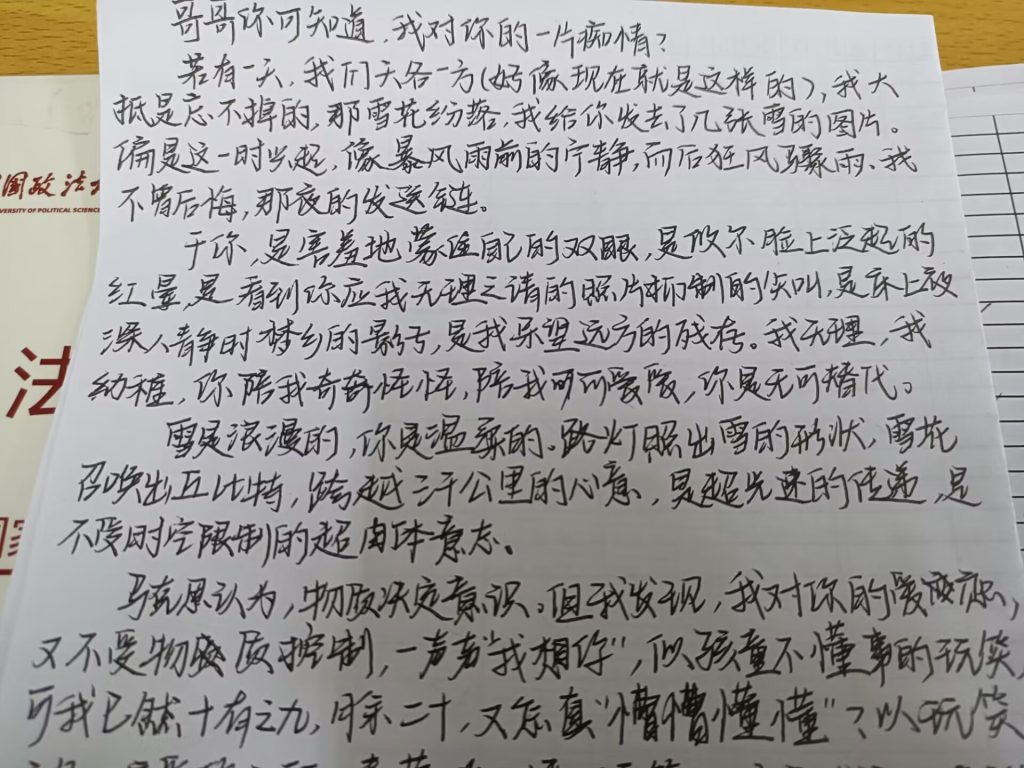 哥哥你可知道,我对你的一片痴情?
若有一天,我们天各一方(好像现在就是这样的),我大
抵是忘不掉的,那雪花纷落,我给你发去了几张雪的图片。
偏是这一时兴起,像暴风雨前的宁静,而后狂风骤雨、我
不曾后悔,那夜的发送键。
于你,是害羞地蒙住自己的双眼,是收不脸上泛起的
红晕,是看到你应我无理之请的照片抑制的尖叫,是床上夜
深人静时梦乡的影子,是我呆望远方的残存。我无理,我
幼稚,你陪我奇奇怪怪,陪我可可爱爱,你是无可替代。
雪是浪漫的,你是温柔的。路灯照出雪的形状,雪花
召唤出五比特,跨越三千公里的心意,是超光速的传递,是
不受时空限制的超肉体意志。
马克思认为,物质决定意识。但我发现,我对你的爱
又不受物质控制,一声声“我想你”,似孩童不懂事的玩笑,
可我已然十有之九,月余二十,又怎真“懵懵懂懂”?以玩笑
國政法大
VERSITY OF POLITICAL SCIENCE
法